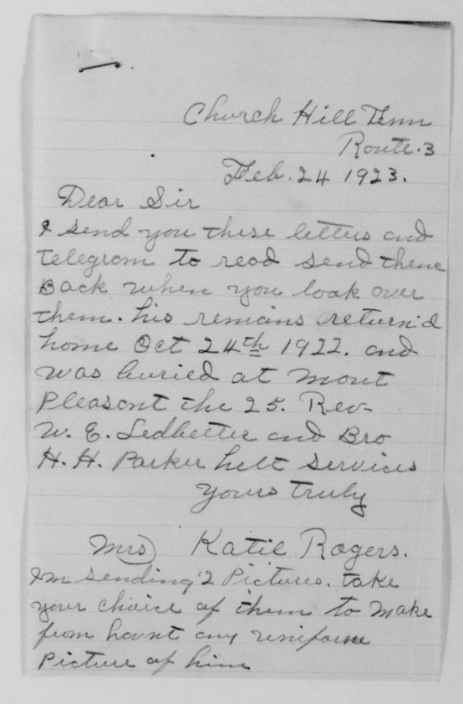 Church Hill Tenn
Route.3
Feb. 24 1923.
Dear Sir
I send you these letters and
telegrom to read send them
Back when you look over
them. his remains return'd
home Oct 24th 1922. and
was buried at mont
Pleasant the 25. Rev.
W. E. Ledbetter and Bro
H. H. Parker helt services
yours truly
Mrs) Katie Rogers.
I'm sending 2 Pictures. take
your choice of them to make
from havnt any uniform
Picture of him